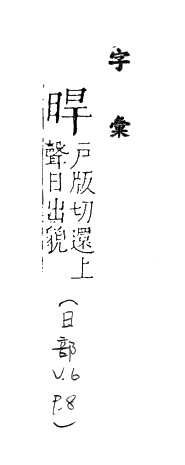 字彙
睅
戶版切還上
聲日出貌
(日部
V.6
P.8)